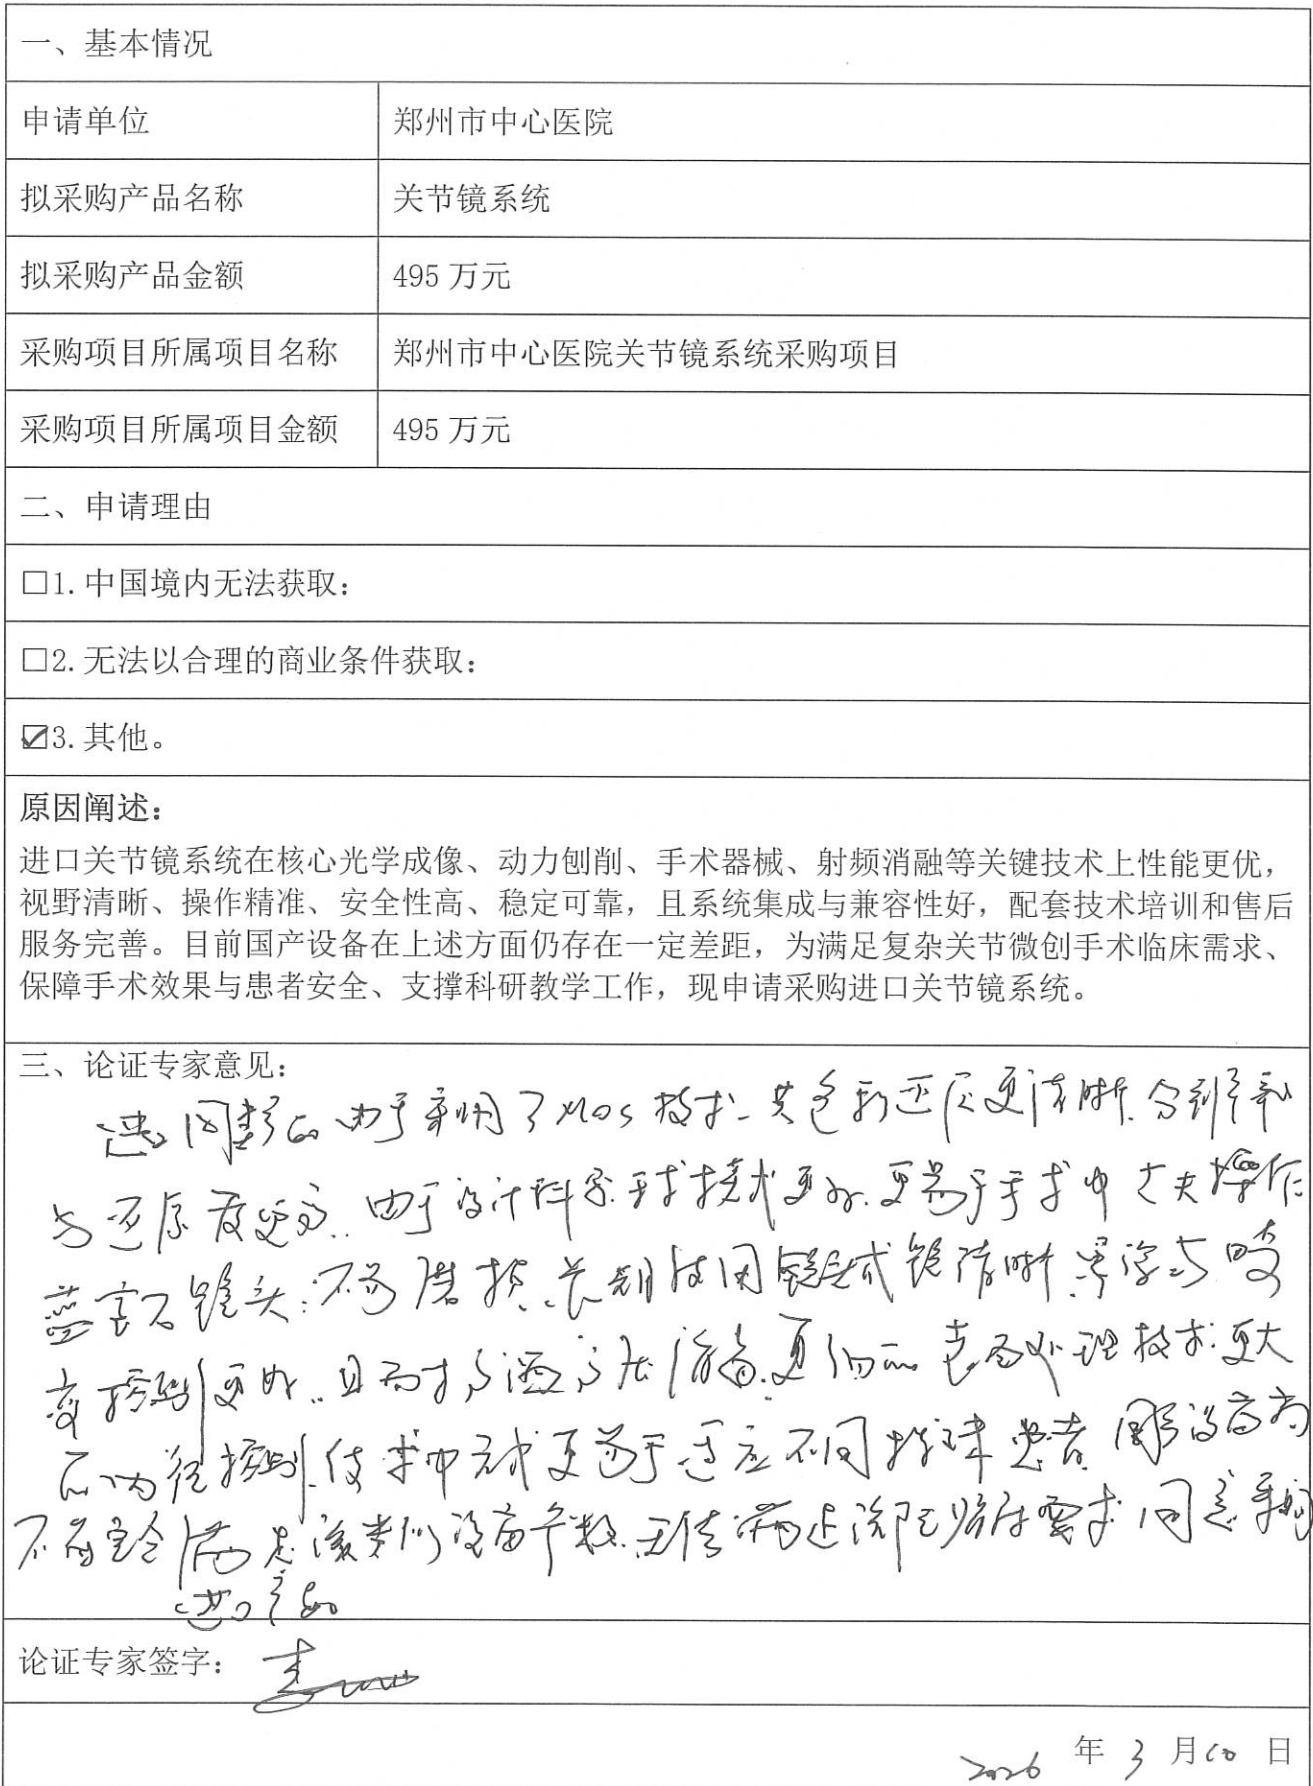 一、基本情况
申请单位 郑州市中心医院
拟采购产品名称 关节镜系统
拟采购产品金额 495 万元
采购项目所属项目名称 郑州市中心医院关节镜系统采购项目
采购项目所属项目金额 495 万元
二、申请理由
□1.中国境内无法获取：
□2.无法以合理的商业条件获取：
☑3.其他。
原因阐述：
进口关节镜系统在核心光学成像、动力刨削、手术器械、射频消融等关键技术上性能更优，
视野清晰、操作精准、安全性高、稳定可靠，且系统集成与兼容性好，配套技术培训和售后
服务完善。目前国产设备在上述方面仍存在一定差距，为满足复杂关节微创手术临床需求、
保障手术效果与患者安全、支撑科研教学工作，现申请采购进口关节镜系统。
三、论证专家意见：
由于采用了MOS技术 其色彩还原更清晰 分辨率
与还原度更高 由于设计科学 更易于手术中大夫操作
蓝宝石镜头 不易磨损 长期使用 清晰
更好 且耐高温高压消毒 更 表面处理技术 更大
内径 使术中 更易于适应不同 患者 国产设备尚
不能完全满足该类 设备参数 无法满足 临床需求 同意采购
进口产品
论证专家签字：
2026 年 3 月 10 日